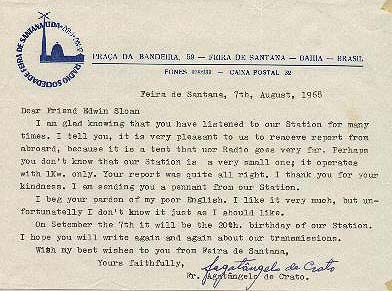 RADIO SOCIEDADE FEIRA DE SANTANA LTDA
PRAÇA DA BANDEIRA, 59 – FEIRA DE SANTANA – BAHIA – BRASIL
FONES – CAIXA POSTAL 32
Feira de Santana, 7th, August, 1968
Dear Friend Edwin Sloan
I am glad knowing that you have listened to our Station for many
times. I tell you, it is very pleasant to us to receeve report from
abroard, because it is a test that uor Radio goes very far. Perhaps
you don't know that our Station is a very small one; it operates
with 1Kw. only. Your report was quite all right. I thank you for your
kindness. I am sending you a pennant from our Station.
I beg your pardon of my poor English. I like it very much, but un-
fortunatelly I don't know it just as I should like.
On Setember the 7th it will be the 20th. birthday of our Station.
I hope you will write again and again about our transmissions.
With my best wishes to you from Feira de Santana,
Yours faithfully,
Jagatângelo do Crato
Fr. Jagatângelo do Crato